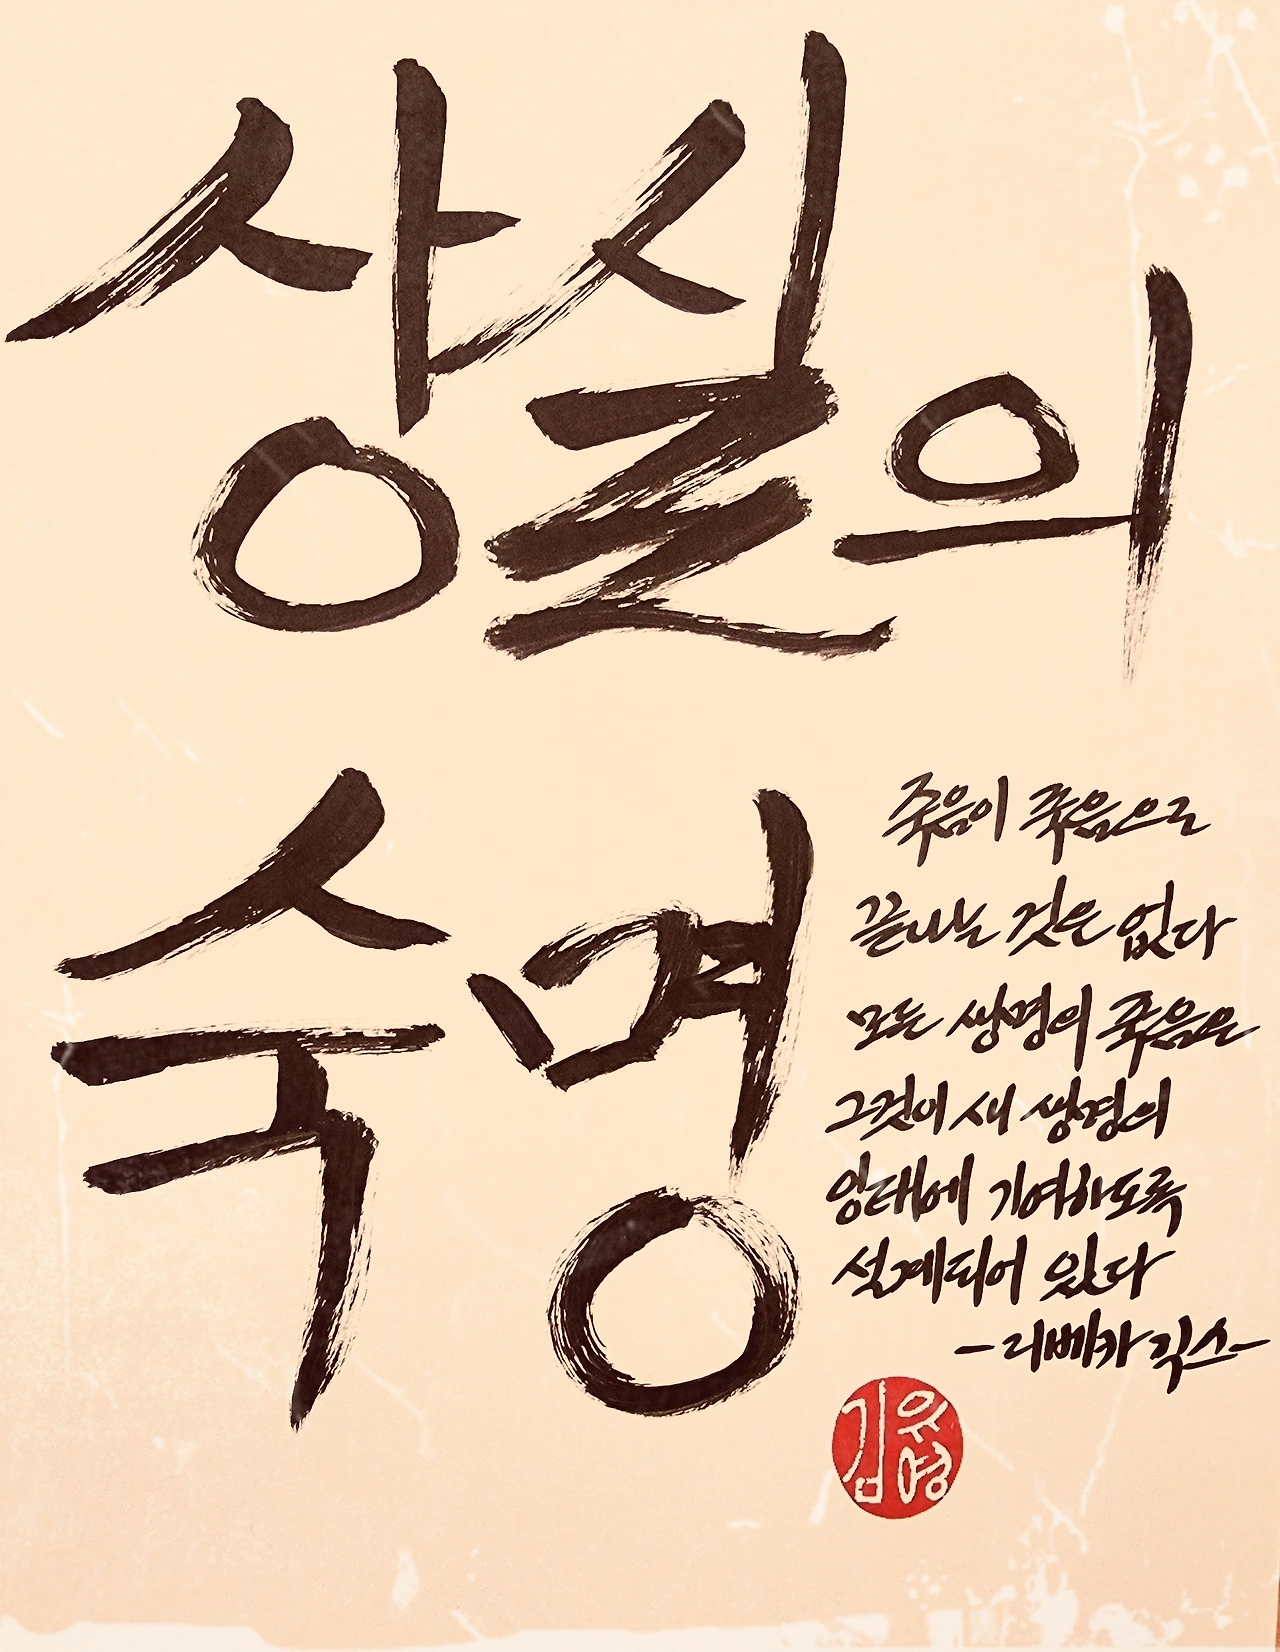 상실의
숙명
죽음이 죽음으로
끝나는 것은 없다
모든 생명의 죽음은
그것이 새 생명의
잉태에 기여하도록
설계되어 있다
-리베카 긱스-